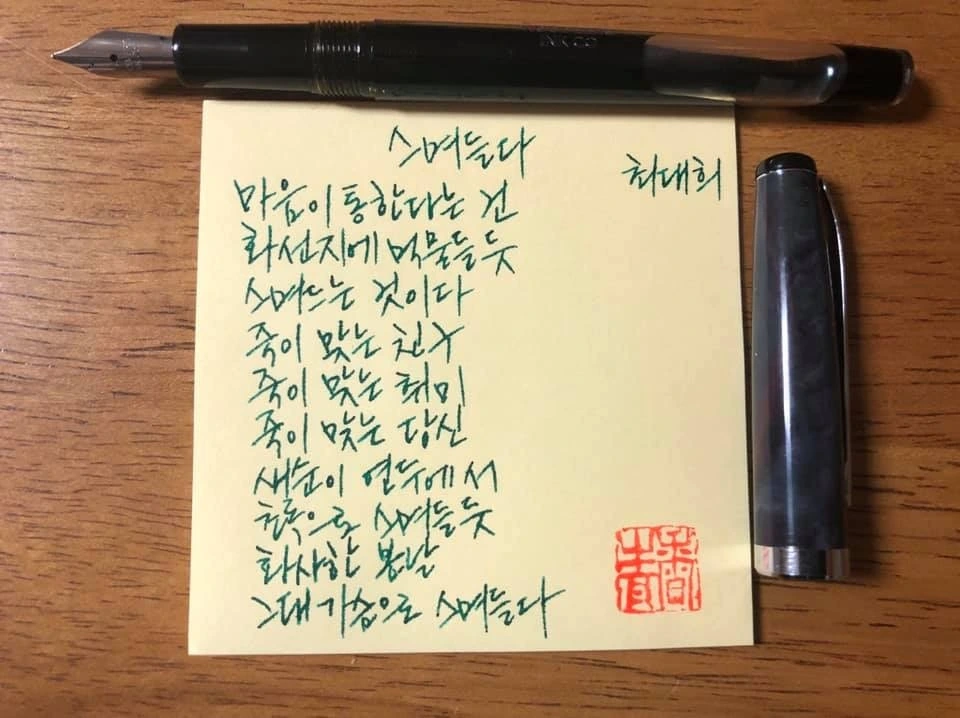 스며들다
최대희
마음이 통한다는 건
화선지에 먹물들듯
스며드는 것이다
죽이 맞는 친구
죽이 맞는 취미
죽이 맞는 당신
새순이 연두에서
초록으로 스며들듯
화사한 봄날
그대 가슴으로 스며들다